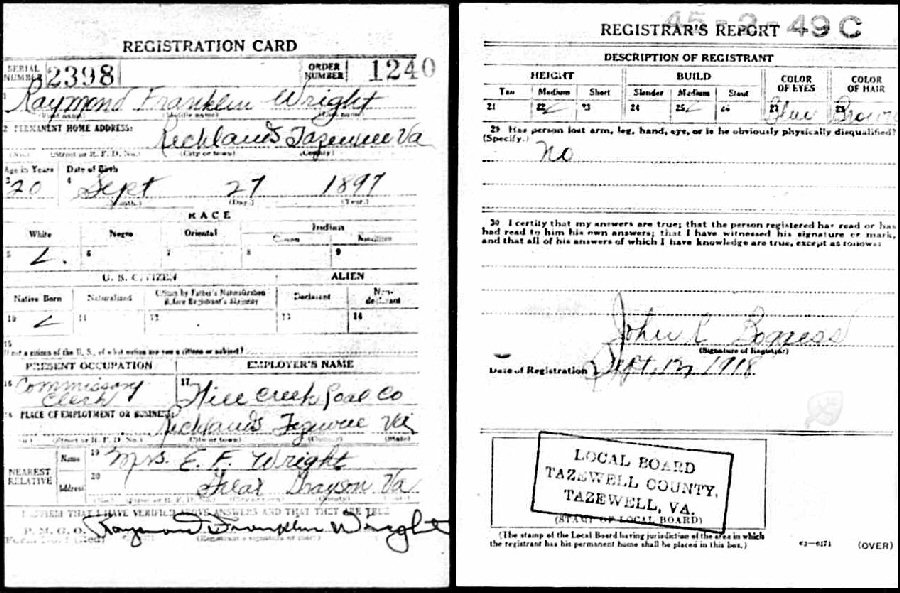 REGISTRATION CARD
SERIAL NUMBER 2398 ORDER NUMBER 1240
1 Raymond Franklin Wright
2 PERMANENT HOME ADDRESS:
Richlands Tazewell Va
(No.) (Street or R. F. D. No.) (City or town) (County)
Age in Years Date of Birth
3 20 4 Sept 27 1897
(Month.) (Day.) (Year.)
RACE
White Negro Oriental Indian
Citizen Noncitizen
5 6 7 8 9
U. S. CITIZEN ALIEN
Native Born Naturalized Citizen by Father's Naturalization Before Registrant's Majority Declarant Non-declarant
10 11 12 13 14
15
If not a citizen of the U. S., of what nation are you a citizen or subject?
PRESENT OCCUPATION EMPLOYER'S NAME
16 Commissary Clerk 17 Hill Creek Coal Co
18 PLACE OF EMPLOYMENT OR BUSINESS:
Richlands Tazewell Va
(No.) (Street or R. F. D. No.) (City or town) (County) (State)
NEAREST RELATIVE Name 19 Mrs. E. F. Wright
Address 20 Grayson Va
I AFFIRM THAT I HAVE VERIFIED ABOVE ANSWERS AND THAT THEY ARE TRUE
P. M. G. O. Raymond Franklin Wright
45-2-49 C
REGISTRAR'S REPORT
DESCRIPTION OF REGISTRANT
HEIGHT BUILD COLOR OF EYES COLOR OF HAIR
Tall Medium Short Slender Medium Stout
21 22 23 24 25 26 27 Blue 28 Brown
29 Has person lost arm, leg, hand, eye, or is he obviously physically disqualified?
(Specify.) No
30 I certify that my answers are true; that the person registered has read or has
had read to him his own answers; that I have witnessed his signature or mark,
and that all of his answers of which I have knowledge are true, except as follows:
John R
(Signature of Registrar)
Date of Registration Sept. 12, 1918
LOCAL BOARD
TAZEWELL COUNTY,
TAZEWELL, VA.
(STAMP OF LOCAL BOARD)
(The stamp of the Local Board having jurisdiction of the area in which
the registrant has his permanent home shall be placed in this box.)
(OVER)